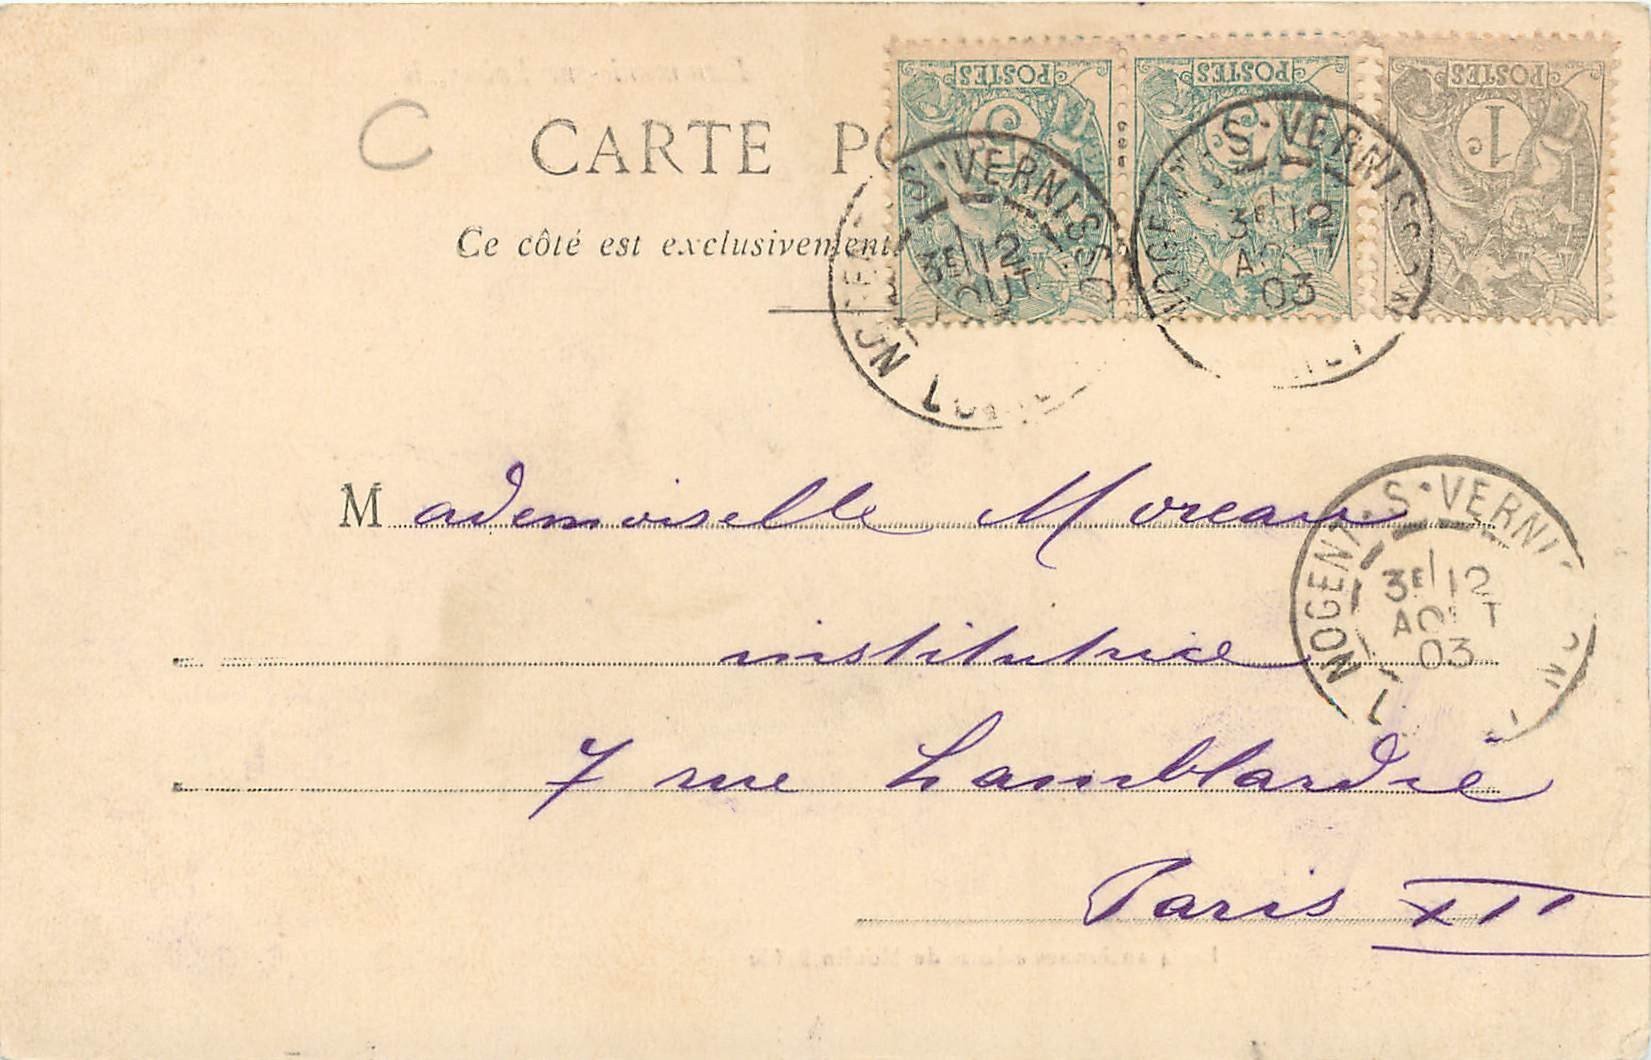 C
CARTE PO
Ce côté est exclusivement
POSTES
5
POSTES
5
POSTES
1c
NOGENT-S-VERNISSON
3E 12
AOUT
NOGENT-S-VERNISSON
3E 12
AO
03
Mademoiselle Moreau
institutrice
7 rue Lamblardie
Paris XII
NOGENT-S-VERNI
3E 12
AOUT
03